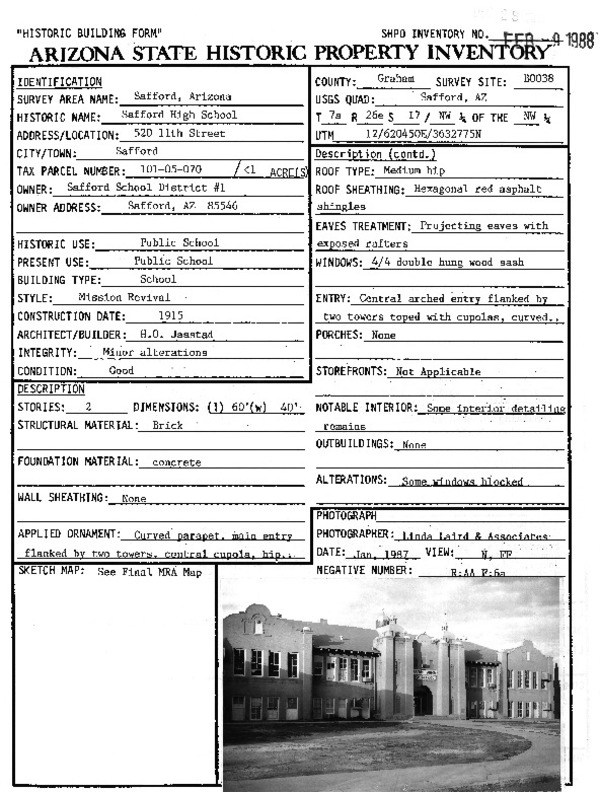 "HISTORIC BUILDING FORM"
SHPO INVENTORY NO. FEB -9 1988
ARIZONA STATE HISTORIC PROPERTY INVENTORY
IDENTIFICATION
SURVEY AREA NAME: Safford, Arizona
HISTORIC NAME: Safford High School
ADDRESS/LOCATION: 520 11th Street
CITY/TOWN: Safford
TAX PARCEL NUMBER: 101-05-070 / <1 ACRE(S)
OWNER: Safford School District #1
OWNER ADDRESS: Safford, AZ 85546
HISTORIC USE: Public School
PRESENT USE: Public School
BUILDING TYPE: School
STYLE: Mission Revival
CONSTRUCTION DATE: 1915
ARCHITECT/BUILDER: H.O. Jaastad
INTEGRITY: Minor alterations
CONDITION: Good
DESCRIPTION
STORIES: 2 DIMENSIONS: (l) 60'(w) 40'
STRUCTURAL MATERIAL: Brick
FOUNDATION MATERIAL: concrete
WALL SHEATHING: None
APPLIED ORNAMENT: Curved parapet, main entry
flanked by two towers, central cupola, hip..
COUNTY: Graham SURVEY SITE: B0038
USGS QUAD: Safford, AZ
T 7s R 26e S 17 / NW ¼ OF THE NW ¼
UTM 12/620450E/3632775N
Description (contd.)
ROOF TYPE: Medium hip
ROOF SHEATHING: Hexagonal red asphalt
shingles
EAVES TREATMENT: Projecting eaves with
exposed rafters
WINDOWS: 4/4 double hung wood sash
ENTRY: Central arched entry flanked by
two towers toped with cupolas, curved..
PORCHES: None
STOREFRONTS: Not Applicable
NOTABLE INTERIOR: Some interior detailing
remains
OUTBUILDINGS: None
ALTERATIONS: Some windows blocked
PHOTOGRAPH
PHOTOGRAPHER: Linda Laird & Associates
DATE: Jan, 1987 VIEW: N, FF
NEGATIVE NUMBER: R:AA F:6a
SKETCH MAP: See Final MRA Map